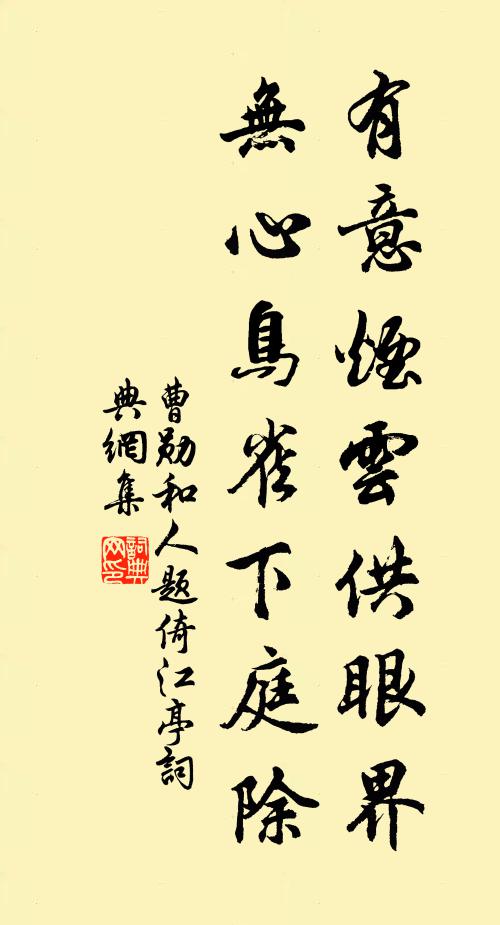 有意煙雲供眼界
無心鳥雀下庭除
曹勛和人題倚江亭詞
典網集
詞典
网印